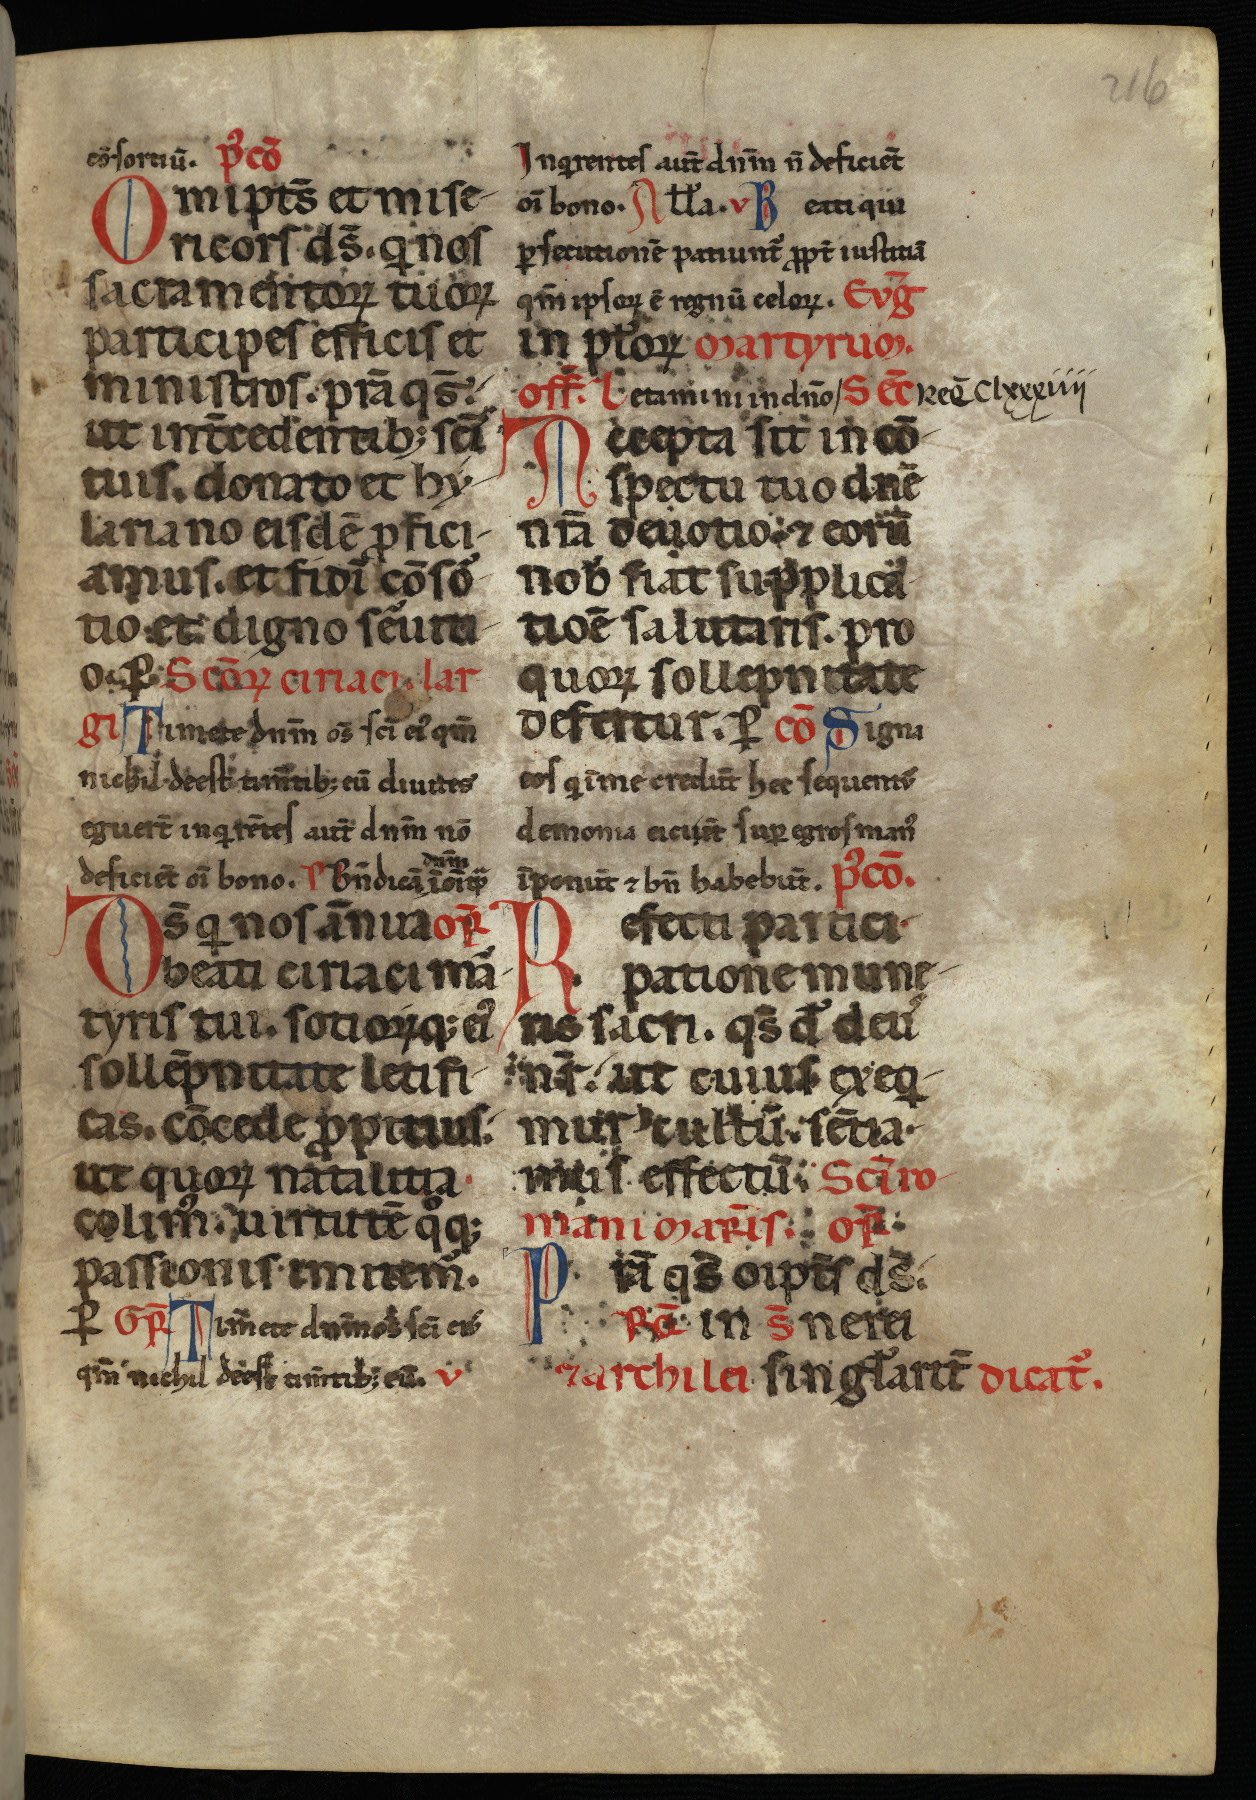 216
cōsortiū. p̄cō
Omipt̄s et mise-
ricors ds̄. q̇ nos
sacramentoꝝ tuoꝝ
participes efficis et
ministros. prā qs̄.
ut int̄cedentib; scī
tuis. donato et hy-
lariano eisdē ꝓfici-
amus. et fidī cōso-
tio et digno seu̾iti
o. ꝑ. Scōꝝ ciriaci. lar
gi Timete dnm̄ oēs scī ei᷒ qm̄
nichil deest timētib; eū diuites
eguer̄t inq̇rētes aut̄ dnm̄ nō
deficiēt oī bono. P Bn̄dicā dnm̄ ī oī tp̄
Ds̄ q̇ nos ānua or̄
beati ciriaci mā-
tyris tui. sotioꝝq; ei᷒
sollēpnitate letifi
cas. cōcede ꝓpitius.
ut quoꝝ natalitia
colim᷒. uirtutē qͦq;
passionis imitem᷒.
ꝑ Gr̄ Tim̄ete dnm̄ oēs scī eis
qm̄ nichil deest timētib; eū. v
Inq̇rentes aut̄ dnm̄ n̄ deficiēt
oī bono. All̄a. v Beati qui
ꝑsecutionē patiunt᷒ ꝓpt̄ iustitiā
qm̄ ipsoꝝ ē regnū celoꝝ. Evḡ
in pl̄oꝝ martyrum.
off̄. Letamini in dn̄o / Sec̄ Req̄ Clxxxiiii
Accepta sit in cō-
spectu tuo dn̄e
nr̄a deuotio. ⁊ eorū
nob̄ fiat supplica
tioē salutaris. pro
quoꝝ sollepnitate
defertur. ꝑ cō Signa
eos q̇ ī me credūt hec sequentᷣ
demonia eiciēt suꝑ egros man᷒
īponūt ⁊ bn̄ habebūt. p̄cō.
Refecti partici-
patione mune-
ris sacri. qs̄ d̄ deu᷒
nr̄. ut cuius exeq̇-
mur cultū. sētia-
mus effectū. Scī ro-
mani mar̄is. or̄
Prā qs̄ oipt̄s ds̄.
Rq̄ in s̄ nerei
⁊ archilei singl̄arit̄ dicat᷒.